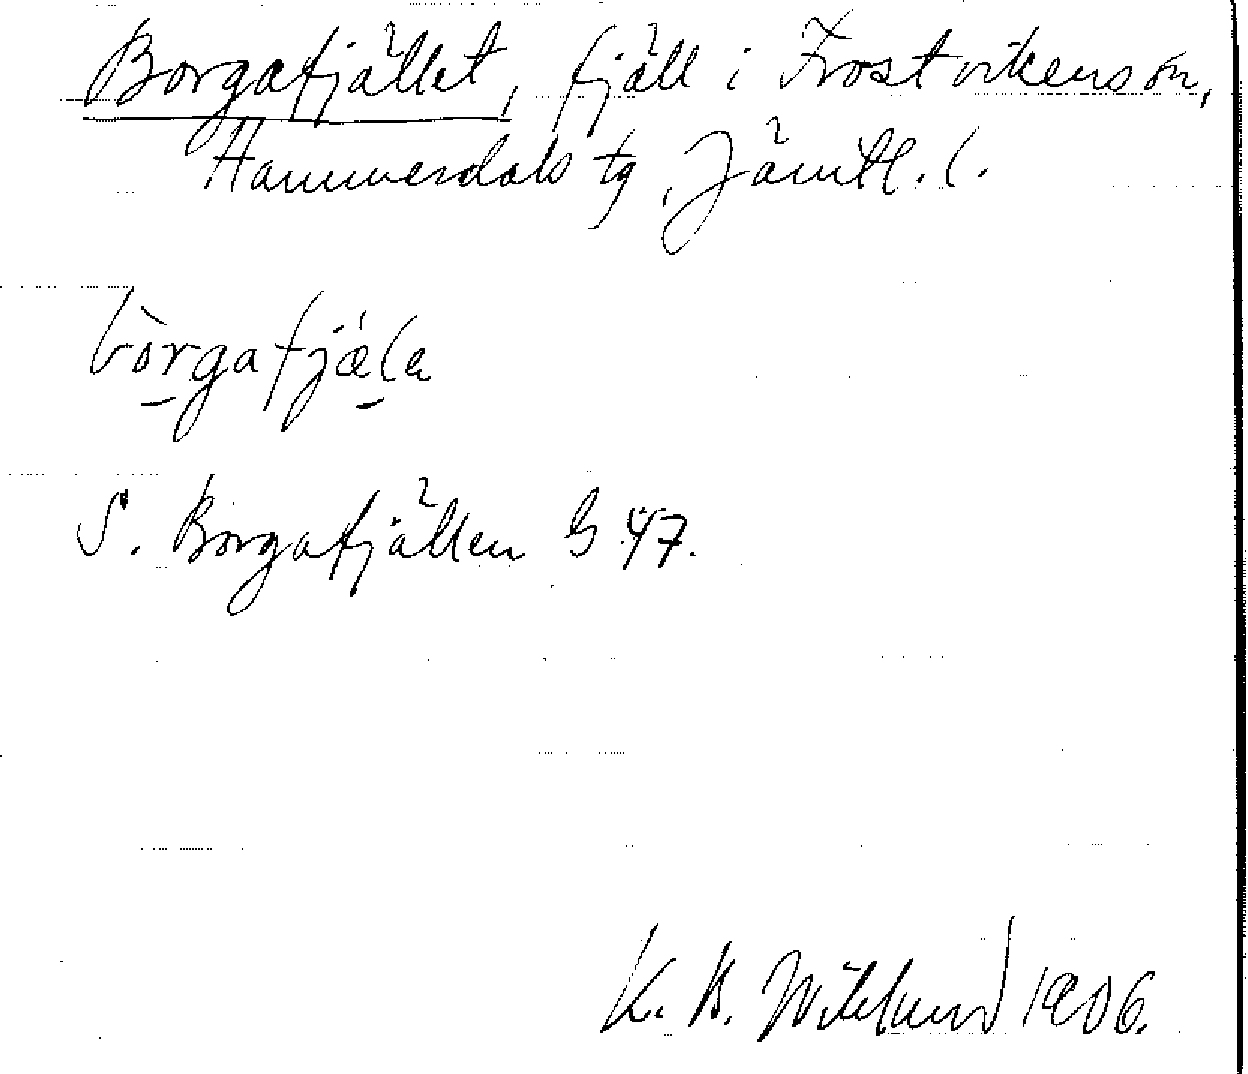 Borgafjället, fjäll i Frostvikens sn,
Hammerdals tg, Jämtl. l.
bòrgafjæ̀la
S. Borgafjällen G 47.
K. B. Wiklund 1906.